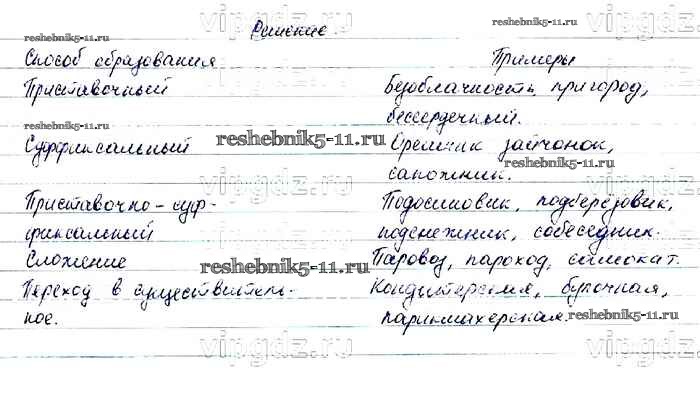 vipgdz.ru vipgdz.ru
reshebnik5-11.ru Решение. reshebnik5-11.ru
Способ образования Примеры
Приставочный Безоблачность, пригород,
бессердечный.
Суффиксальный reshebnik5-11.ru зайчонок,
reshebnik5-11.ru
сапожник.
vipgdz.ru vipgdz.ru
Приставочно-суф- Подосиновик, подберёзовик,
фиксальный подснежник, собеседник.
Сложение reshebnik5-11.ru Паровоз, пароход, самокат.
Переход в существитель- Кондитерская, булочная,
ное. парикмахерская. reshebnik5-11.ru
vipgdz.ru vipgdz.ru